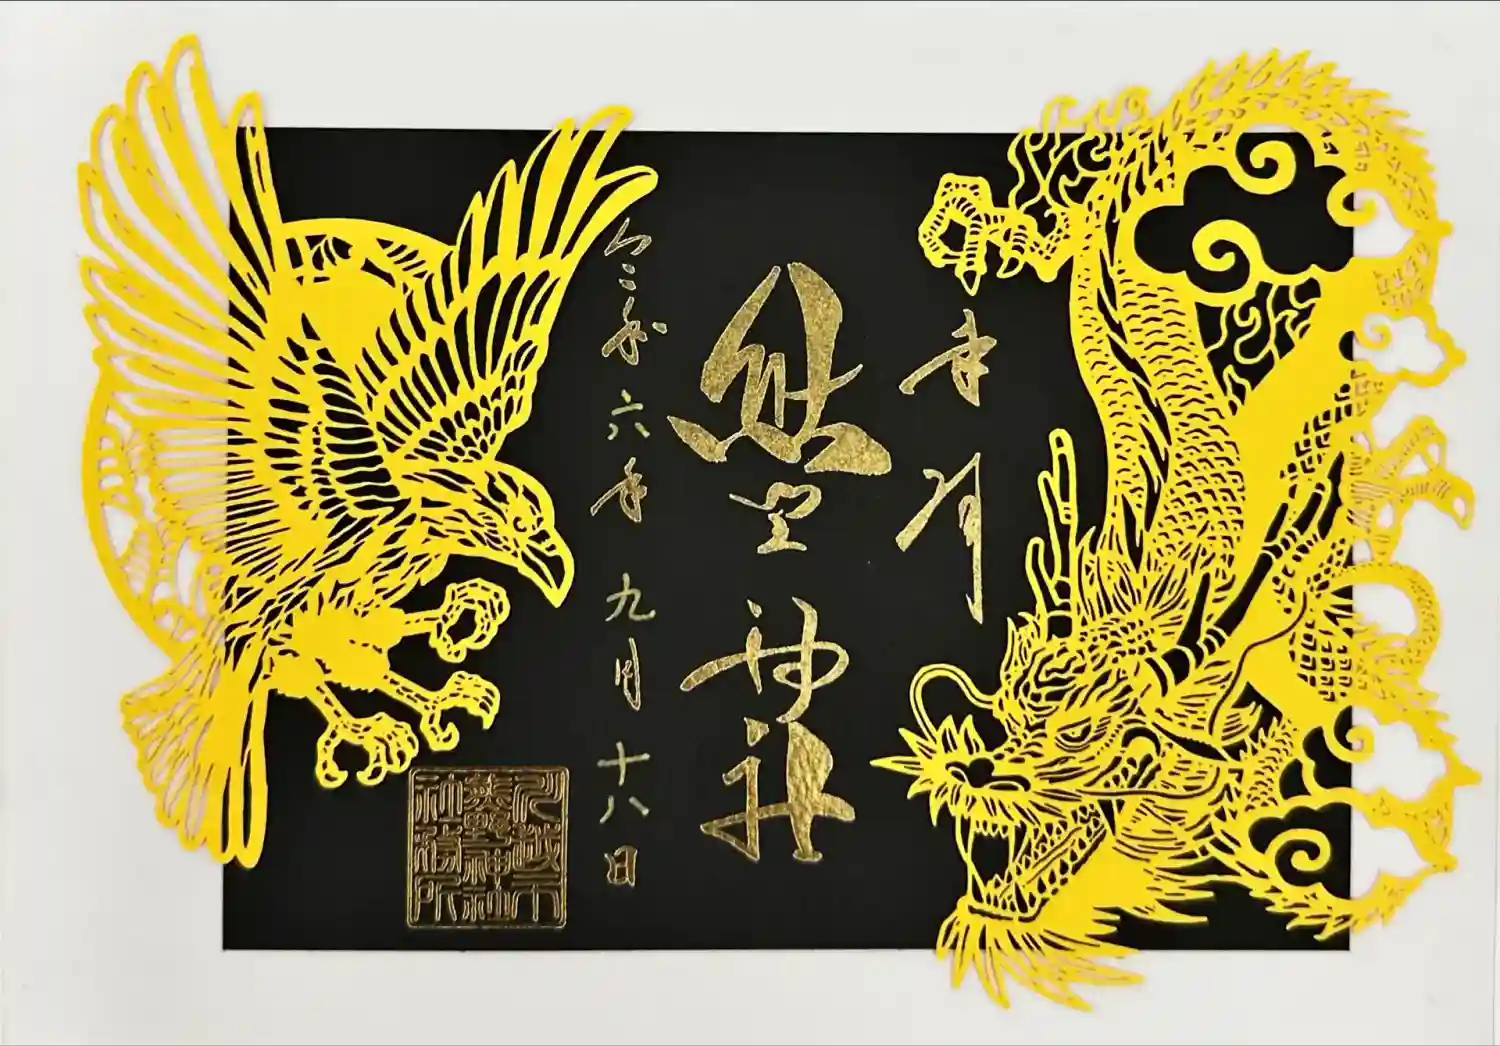 奉拝
熊野神社
令和六年九月十八日
川越市
熊野神社
社務所